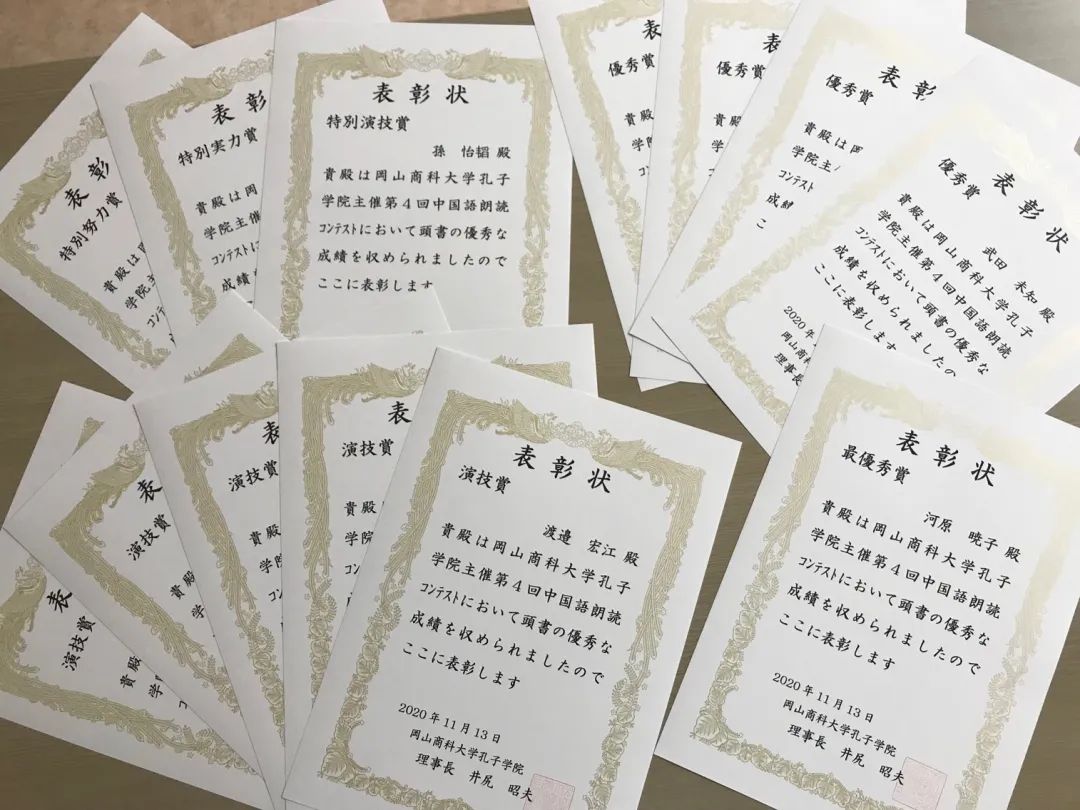 表彰
特別努力賞
貴殿は
学院主
コンテ
表彰
特別実力賞
貴殿は岡
学院主催
コンテストに
成績
表彰状
特別演技賞
孫 怡韜 殿
貴殿は岡山商科大学孔子
学院主催第4回中国語朗読
コンテストにおいて頭書の優秀な
成績を収められましたので
ここに表彰します
表
優秀賞
貴殿
学院
コン
表
優秀賞
貴殿
学院
コン
表彰
優秀賞
貴殿は
学院主
コンテスト
成績
こ
表彰状
優秀賞
武田 未知 殿
貴殿は岡山商科大学孔子
学院主催第4回中国語朗読
コンテストにおいて頭書の優秀な
成績を収められましたの
ここに表彰します
2020年
岡山商
理事長
表
演技賞
貴殿
学院
コ
表
演技賞
貴殿
学
表
演技賞
貴殿
学院
コン
表
演技賞
貴殿
学院
コン
表彰状
演技賞
渡邉 宏江 殿
貴殿は岡山商科大学孔子
学院主催第4回中国語朗読
コンテストにおいて頭書の優秀な
成績を収められましたので
ここに表彰します
2020年11月13日
岡山商科大学孔子学院
理事長 井尻 昭夫
表彰状
最優秀賞
河原 暁子 殿
貴殿は岡山商科大学孔子
学院主催第4回中国語朗読
コンテストにおいて頭書の優秀な
成績を収められましたので
ここに表彰します
2020年11月13日
岡山商科大学孔子学院
理事長 井尻 昭夫